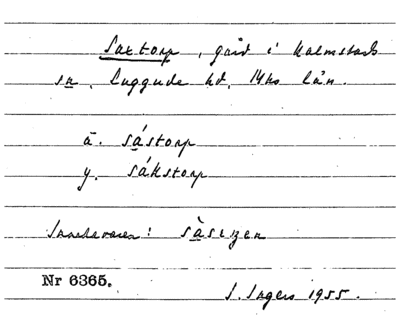 Saxtorp, gård i Kalmstads
sn, Luggude hd, Mhs län.
ä. sástorp
y. sákstorp
Innebyggaren: sàsizen
Nr 6365.
S. Ingers 1955.